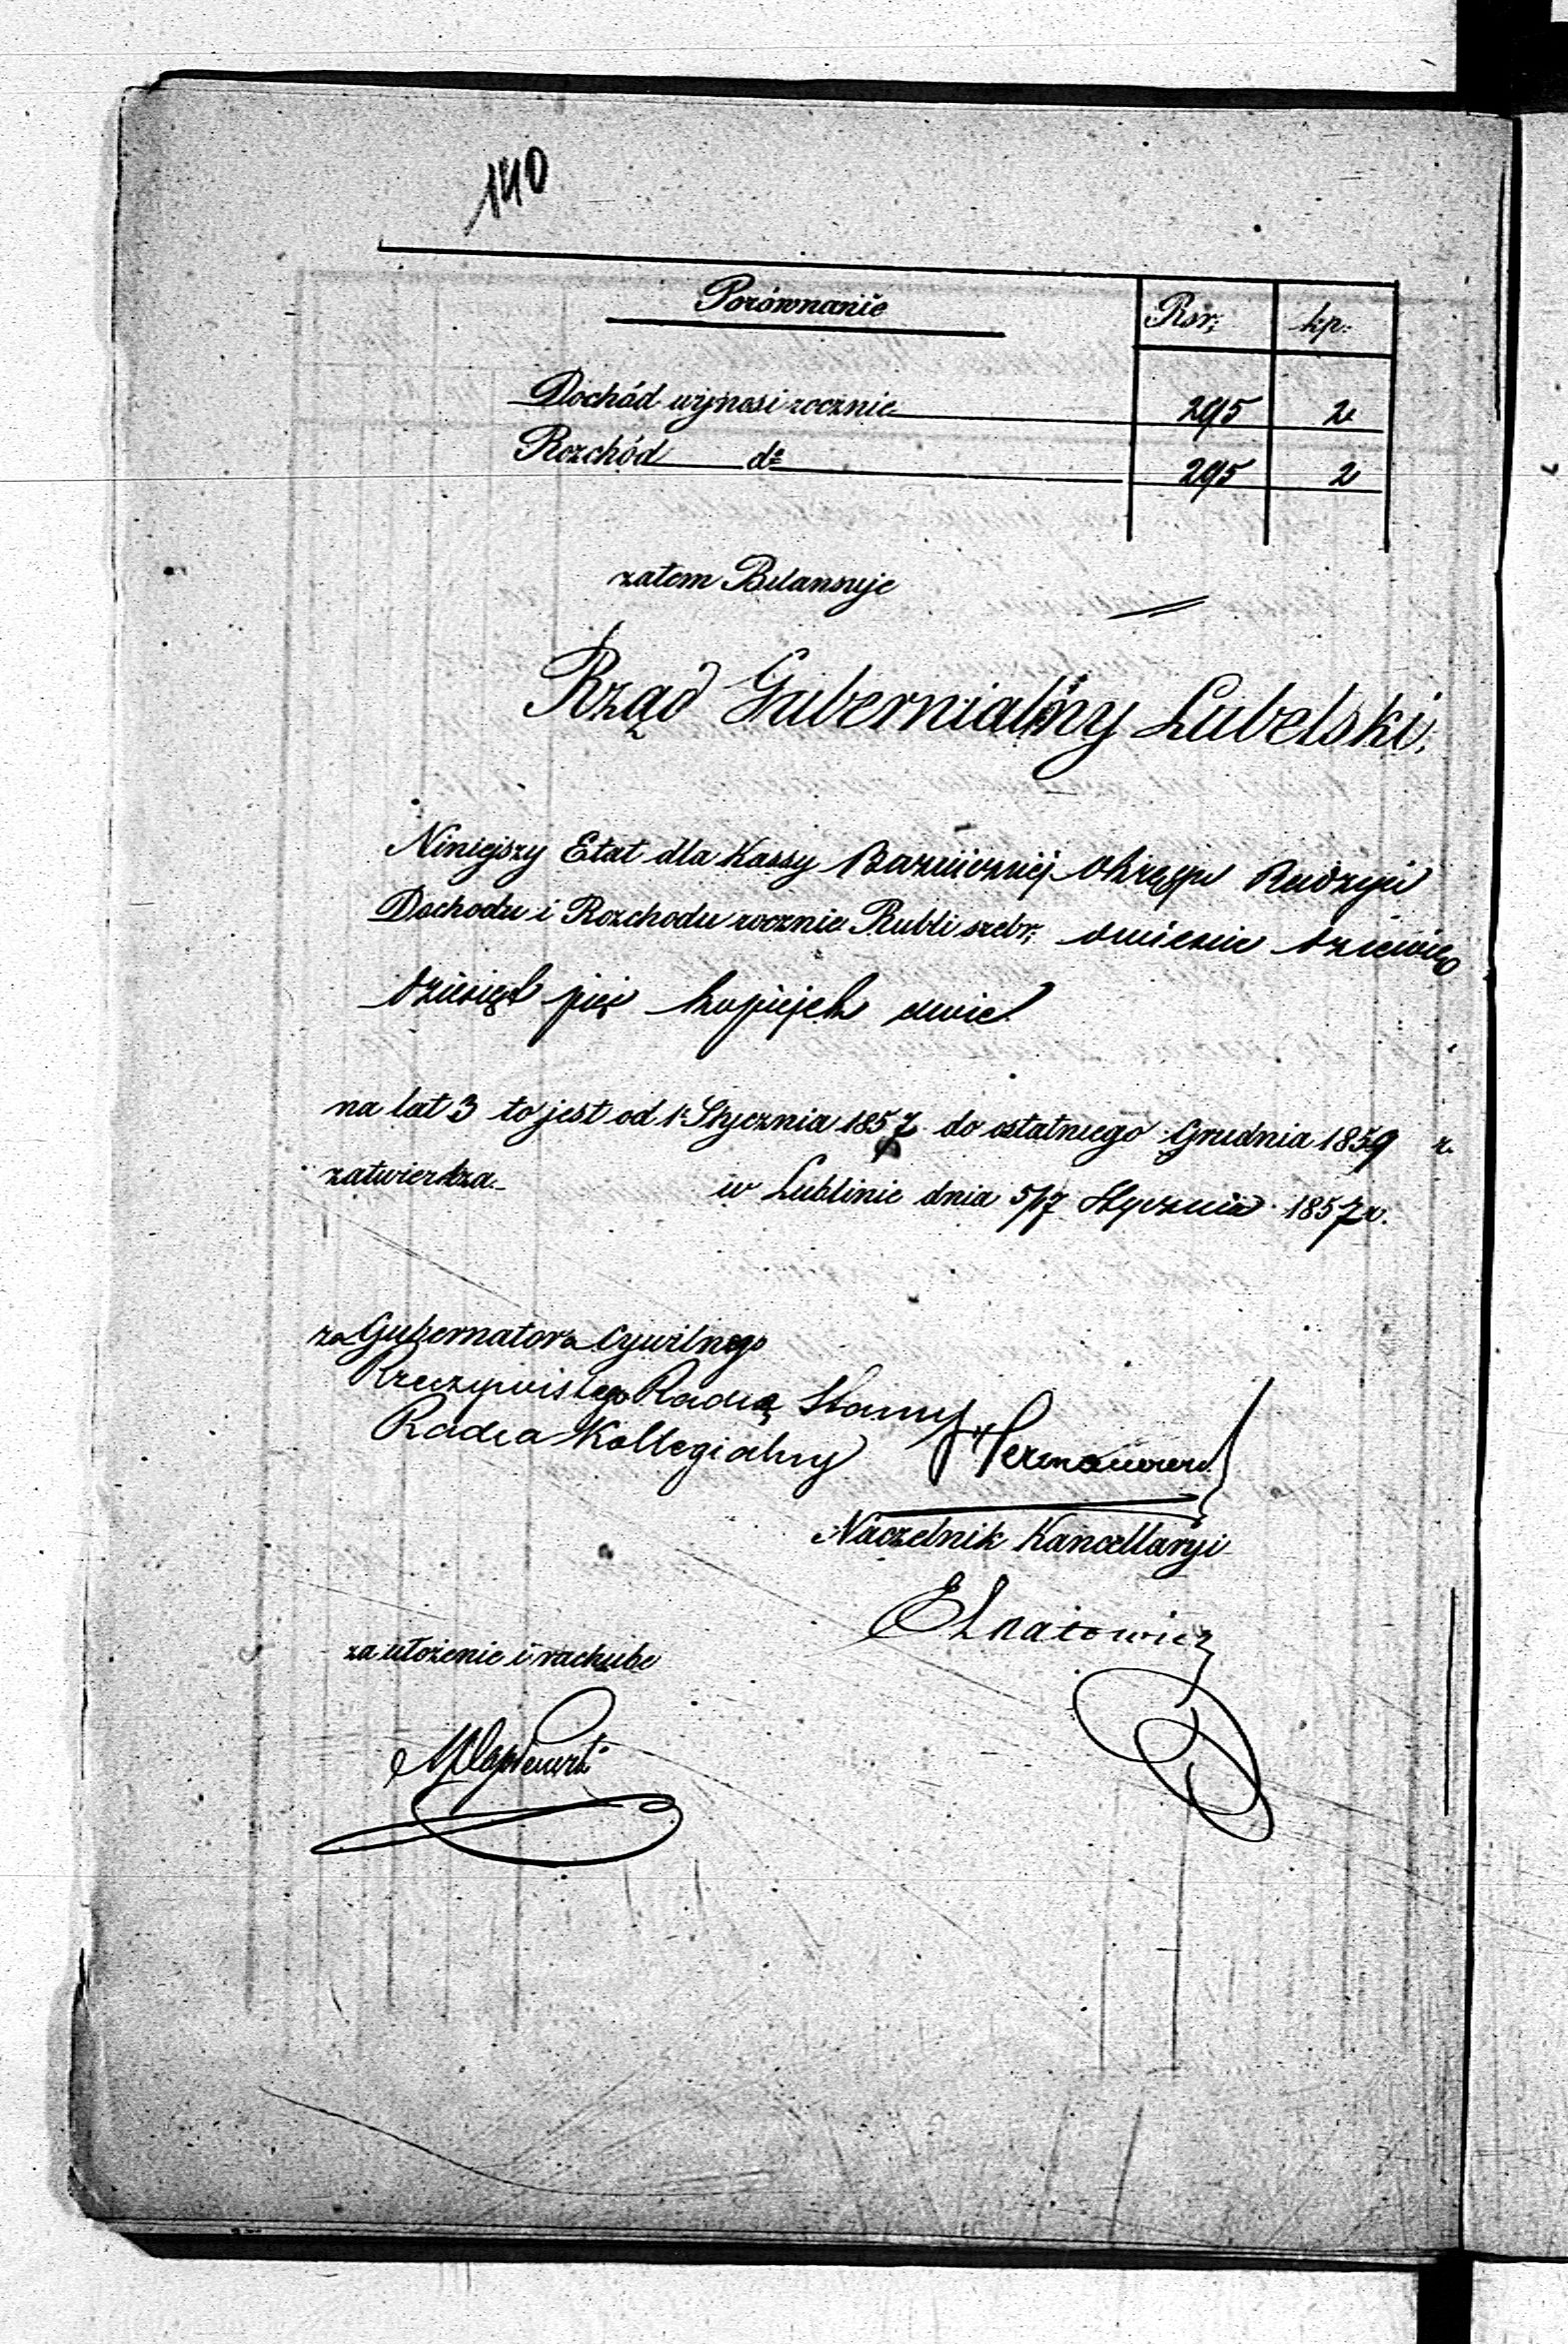 140
Porównanie Rsr; kp:
Dochód wynosi rocznie 295 2
Rozchód do 295 2
zatem Bilansuje
Rząd Gubernialny Lubelski;
Niniejszy Etat dla Kassy Bożniczniej Okręgu
Dochodu i Rozchodu rocznie Rubli srebr; dwieście dziewięć
dziesiąt pięć kopiejek dwie
na lat 3 to jest od 1 Stycznia 1857 do ostatniego Grudnia 1859 r.
zatwierdza. w Lublinie dnia 5/17 Stycznia 1857 r.
za Gubernatora Cywilnego
Rzeczywistego Radcę Stanu
Radca Kollegialny
Naczelnik Kancellaryi
za ułożenie i rachubę